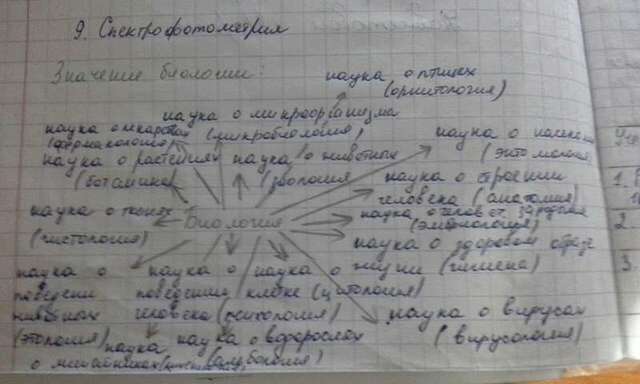 9. Спектрофотометрия
Значение биологии:
наука о птицах
(орнитология)
наука о микроорганизма
(микробиология)
наука о лекарствах
(фармакология)
наука о насеком
(энтомология
наука о растениях
(ботаника)
наука о животных
(зоология)
наука о строении
человека (анатомия)
наука о тканях
(гистология)
Биология
наука о
(эмбриология)
наука о здоровом образе
жизни (гигиена)
наука о
поведении
животных
(этология)
наука о
поведении
человека (психология)
наука о
клетке (цитология)
наука о вирусах
(вирусология)
наука о водорослях
наука
о лишайниках
2.
3.